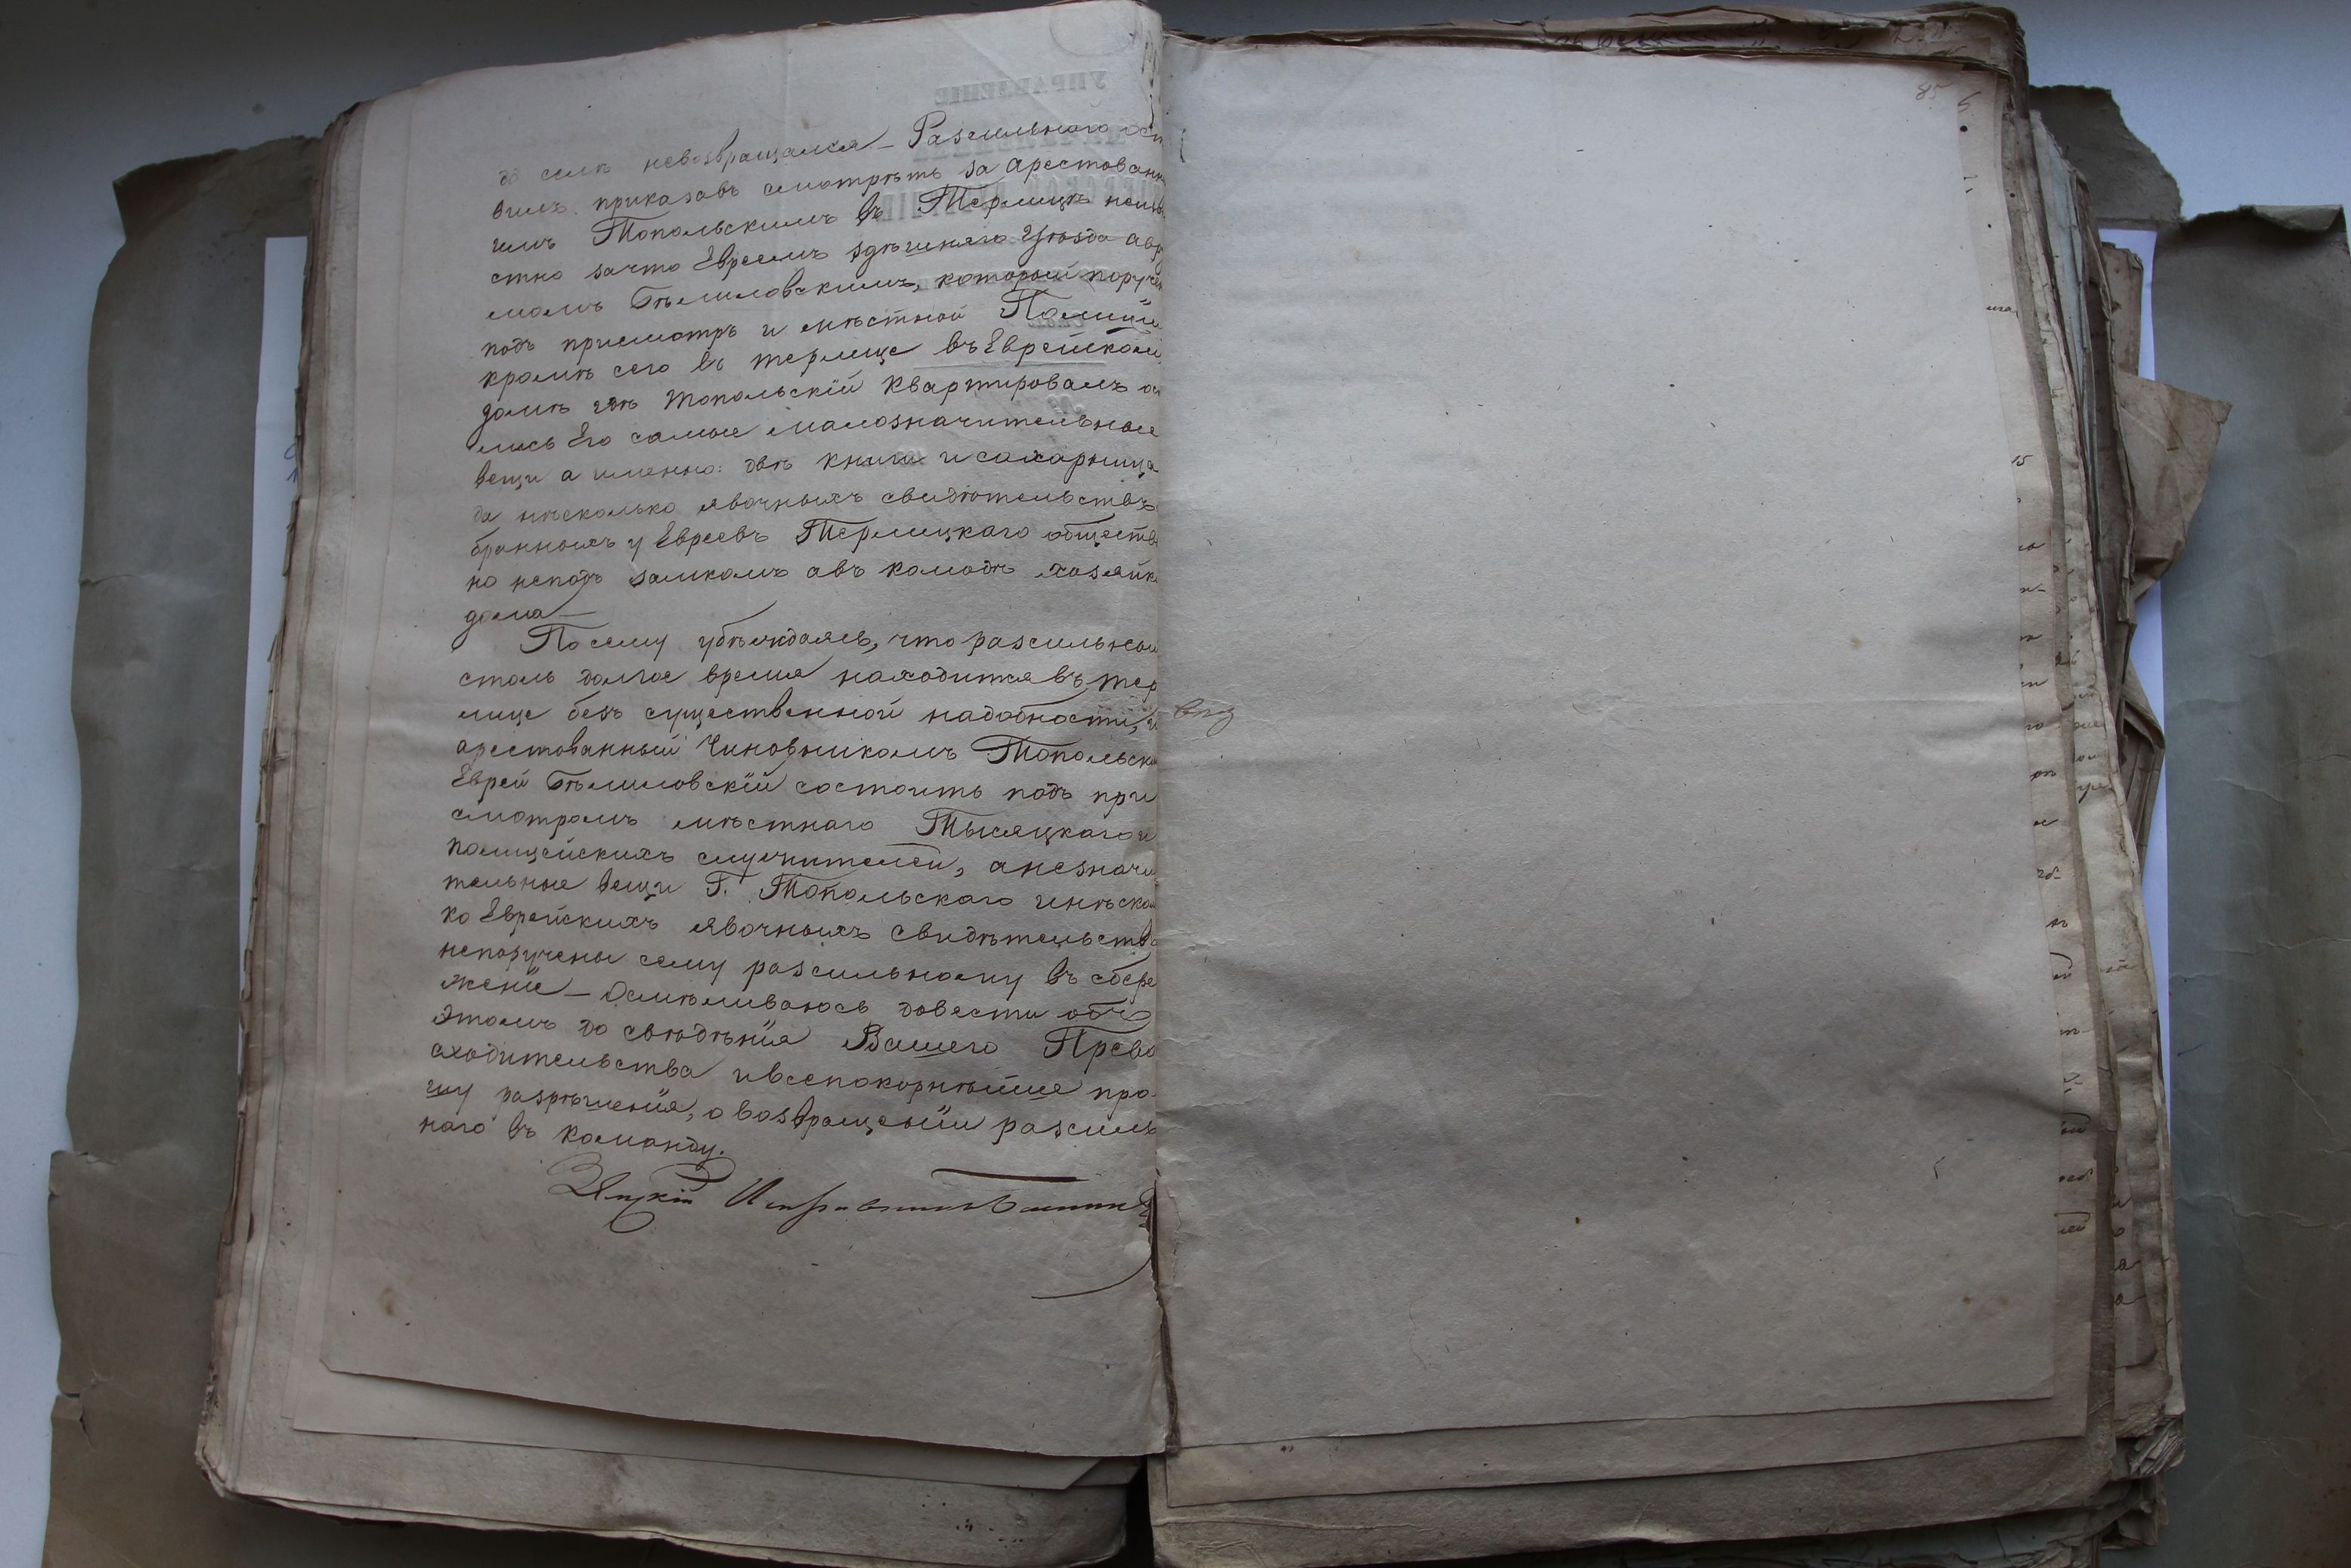 85
до селе невозвращался – Разсыльного ост
вилъ приказавъ смотрѣть за арестованн
нимъ Топольскимъ въ Терлицѣ неизвѣ
стно зачто Евреемъ здѣшняго Уѣзда Авр
момъ Бѣлиловскимъ, который поручен
подъ присмотръ и мѣстной Полиціи
кромѣ сего въ терлице въ Еврейском
домѣ гдѣ Топольскій квартировалъ ос
лись Его самые малозначительные
вещи а именно: двѣ книги и сахарница
да нѣсколько явочныхъ свидѣтельствъ
бранныхъ у Евреевъ Терлицкаго обществ
но неподъ замкомъ авъ комодѣ хозяйк
дома –
Посему убѣждаясь, что разсыльный
столь долгое время находится въ тер
лице безъ существенной надобности, и
арестованный Чиновникомъ Топольски
Еврей Бѣлиловскій состоитъ подъ при
смотромъ мѣстнаго Тысяцкаго и
полицейскихъ служителей, анезначи
тельные вещи Г. Топольскаго инѣскол
ко Еврейскихъ явочныхъ свидѣтельствъ
непоручены сему разсыльному въ сбере
женіе – Осмѣливаюсь довести объ
этомъ до свѣдѣнія Вашего Прево
сходительства ивсепокорнѣйше про
шу разрѣшенія, о возвращеніи разсыль
наго въ команду.